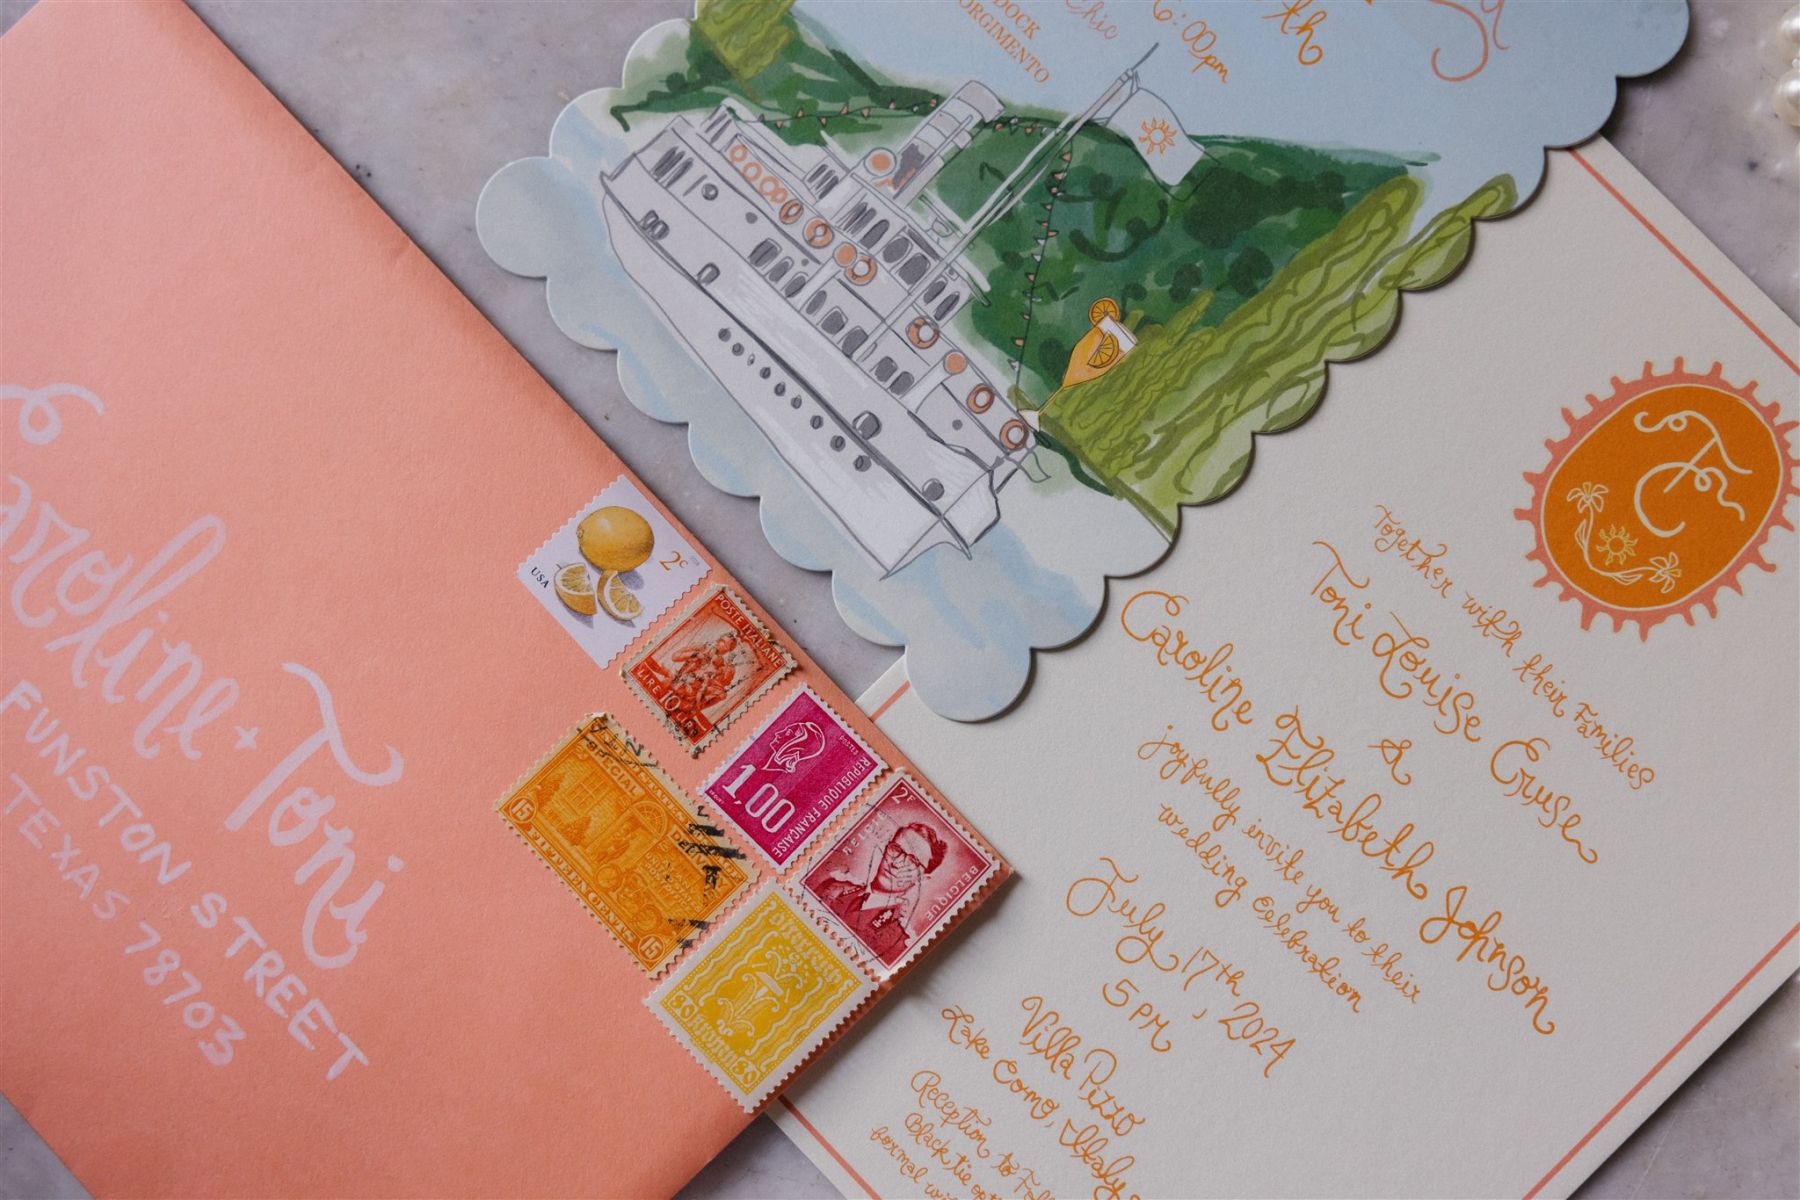 Caroline + Toni
FUNSTON STREET
TEXAS 78703
USA
2c
POSTE ITALIANE
LIRE 10
1,00
POSTES
REPUBLIQUE FRANÇAISE
2F
BELGIQUE
SPECIAL
DELIVERY
15
15
FIFTEEN CENTS
80
80
6:00pm
Chic
DOCK
T C
Together with their Families
Toni Louise Cruse
&
Caroline Elizabeth Johnson
joyfully invite you to their
wedding celebration
July 17th, 2024
5 PM
Villa Pizzo
Lake Como, Italy
Reception to Follow
Black tie
formal